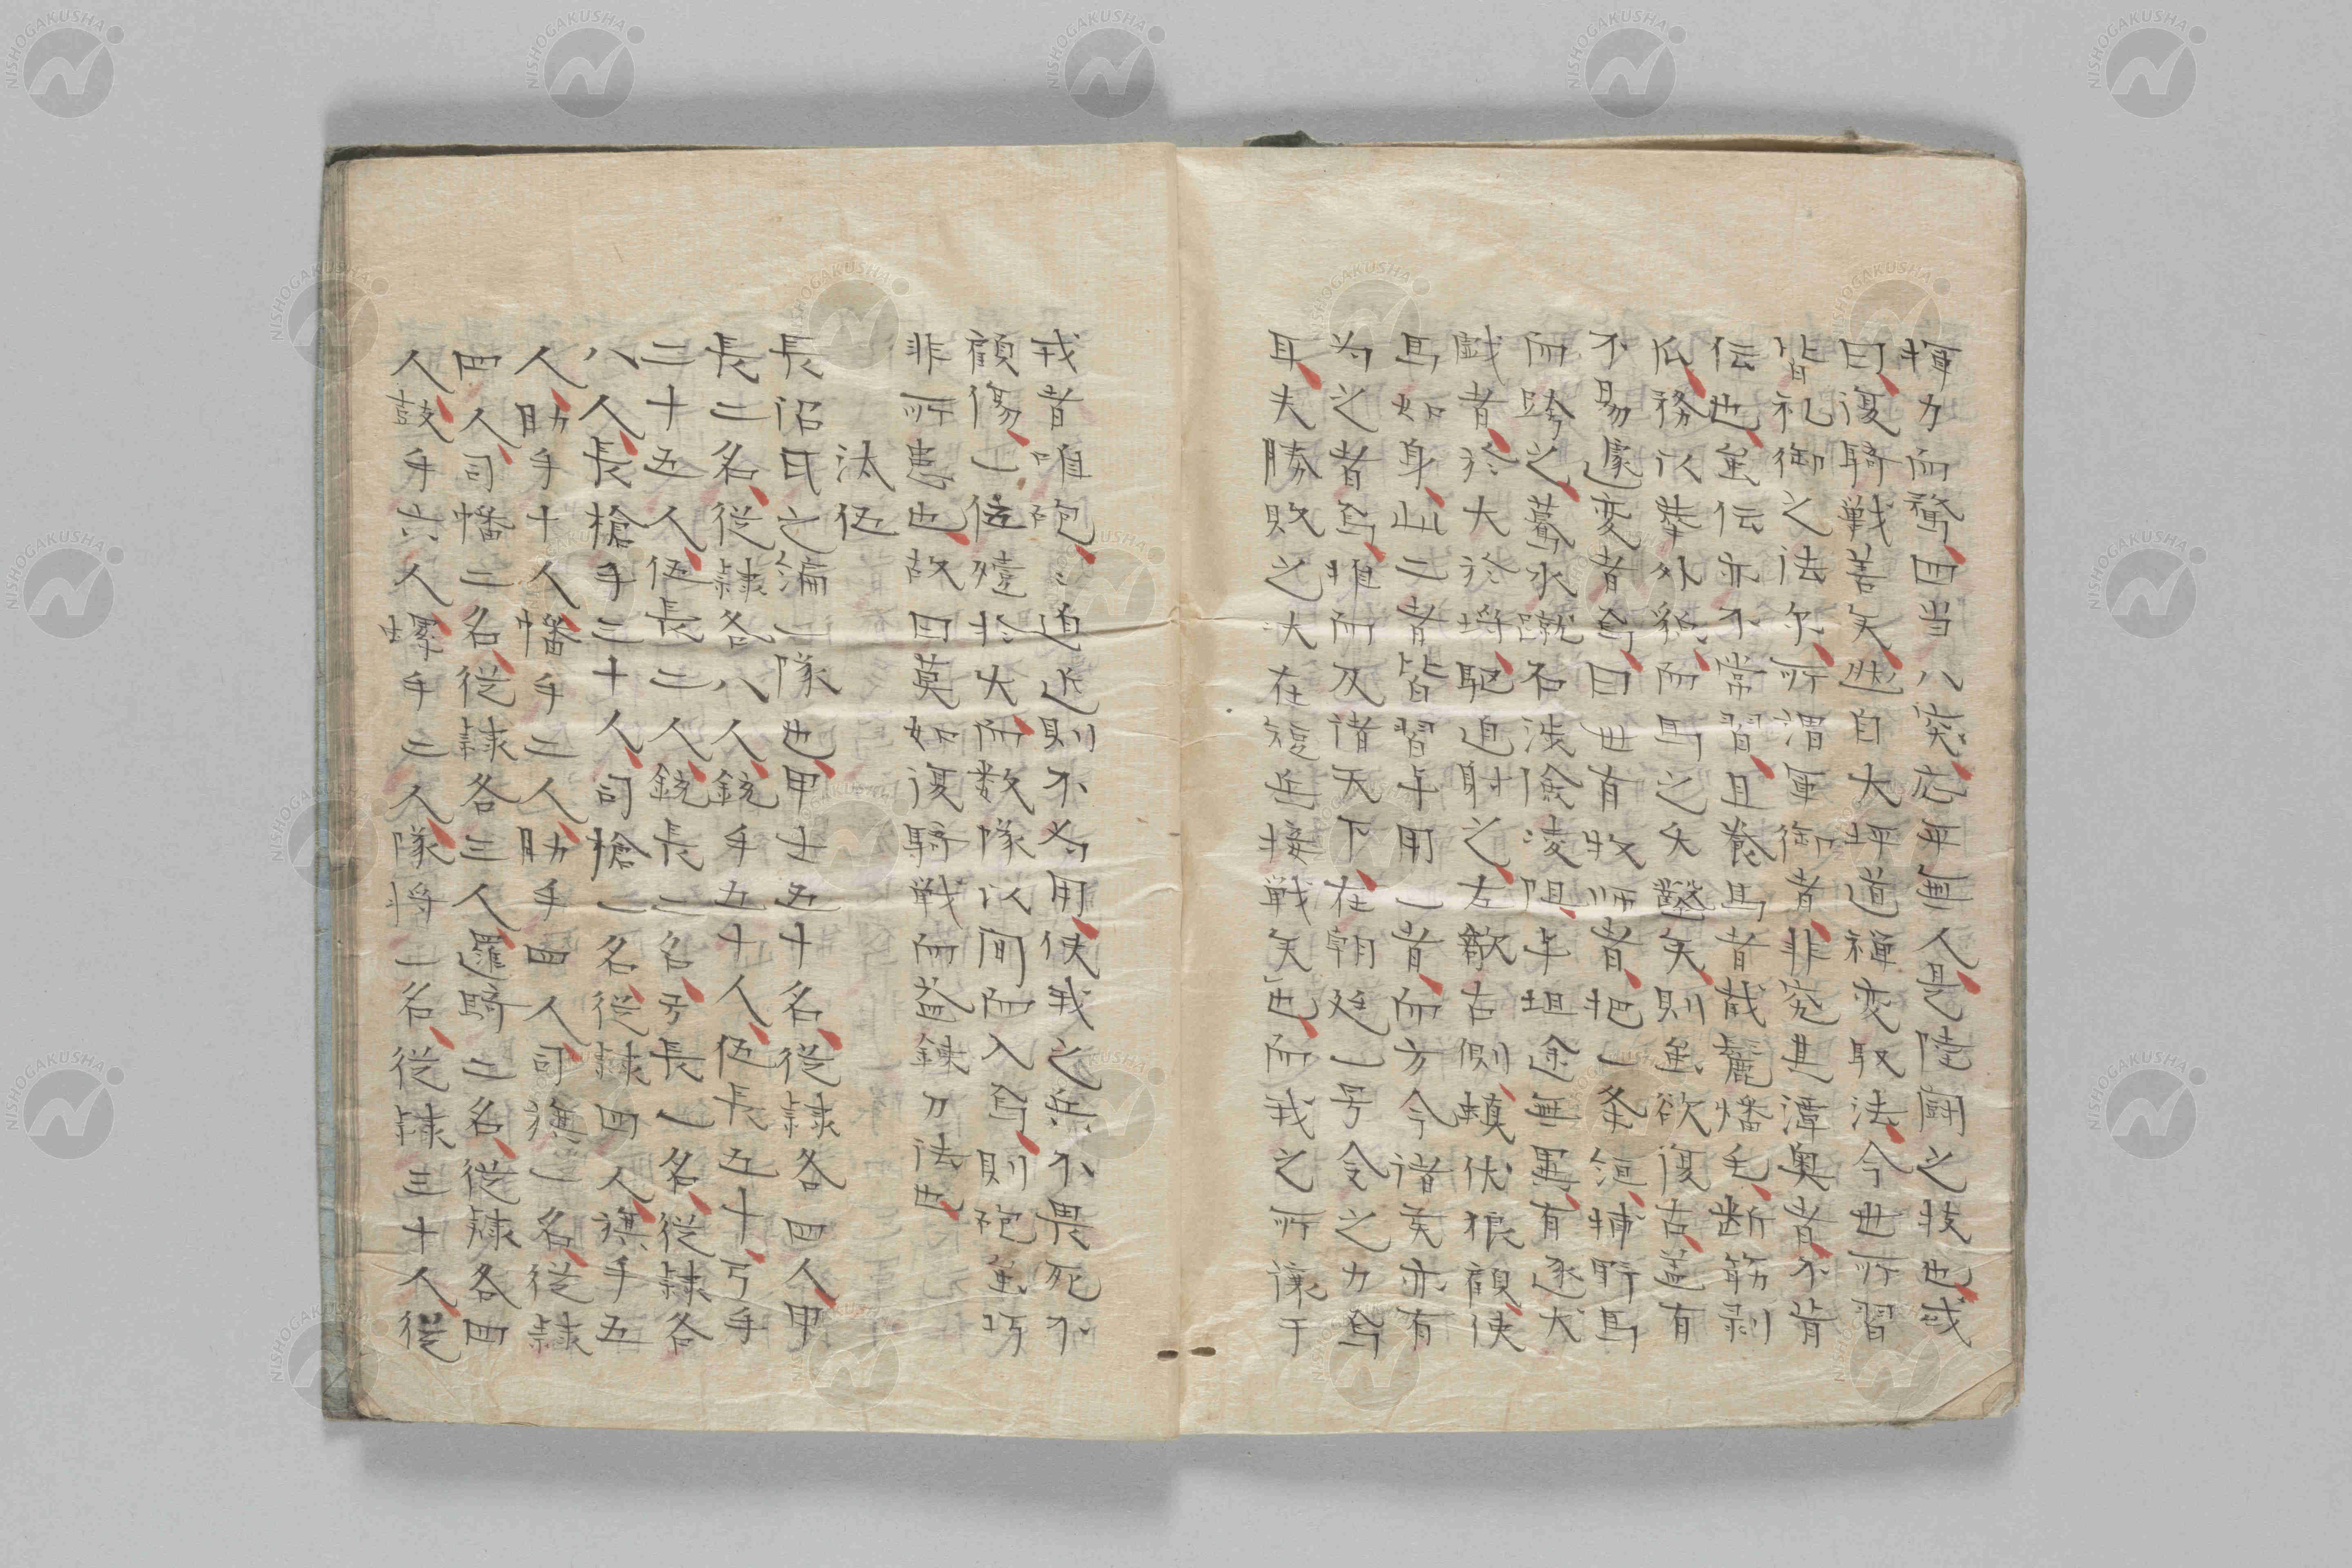 揮刀而騖、四当八突、応平無人、是陸闘之技也、或
曰、復騎戦善矣、然自大坪道禅変馭法、今世所習
皆礼御之法尓、所謂軍御者、非究其潭奥者、不肯
伝也、虽伝亦不常習、且養馬者截鬣燔毛、断筋剥
瓜、務以挙外猊、而馬之失鑿矣、則虽欲復古、盖有
不易遽変者焉、曰世有牧师者、把一条縆、捕野馬
而跨之、驀水蹴石渉険凌阻、与坦途無異、有逐犬
戯者、於大於埒、馳迫射之、左歒右側、蟆伏狼顧、使
馬如身、此二者皆習与用一者、而方今諸矦亦有
为之者焉、推而及諸天下、在朝廷一号令之力焉
耳、夫勝敗之决在短兵接戦矣也、而我之所譲于
戎者唯砲、〻迫近則不为用、使我之兵不畏死不
顧傷、一伍殪於火、而数隊以间而入焉、則砲虽巧
非所患也、故曰莫如復騎戦而益錬刀法也、
汰伍
長沼氏之編一隊也、甲士五十名、従隷各四人、甲
長二名、従隷各八人、銃手五十人、伍長五十、弓手
二十五人、伍長二人、銃長一名、弓長一名、従隷各
八人、長槍手三十人、司槍一名、従隷四人、旗手五
人、助手十人、幡手二人、助手四人、司旗一名、従隷
四人、司幡二名、従隷各三人、邏騎二名、従隷各四
人、鼓手六人、螺手三人、隊将一名、従隷三十人、従